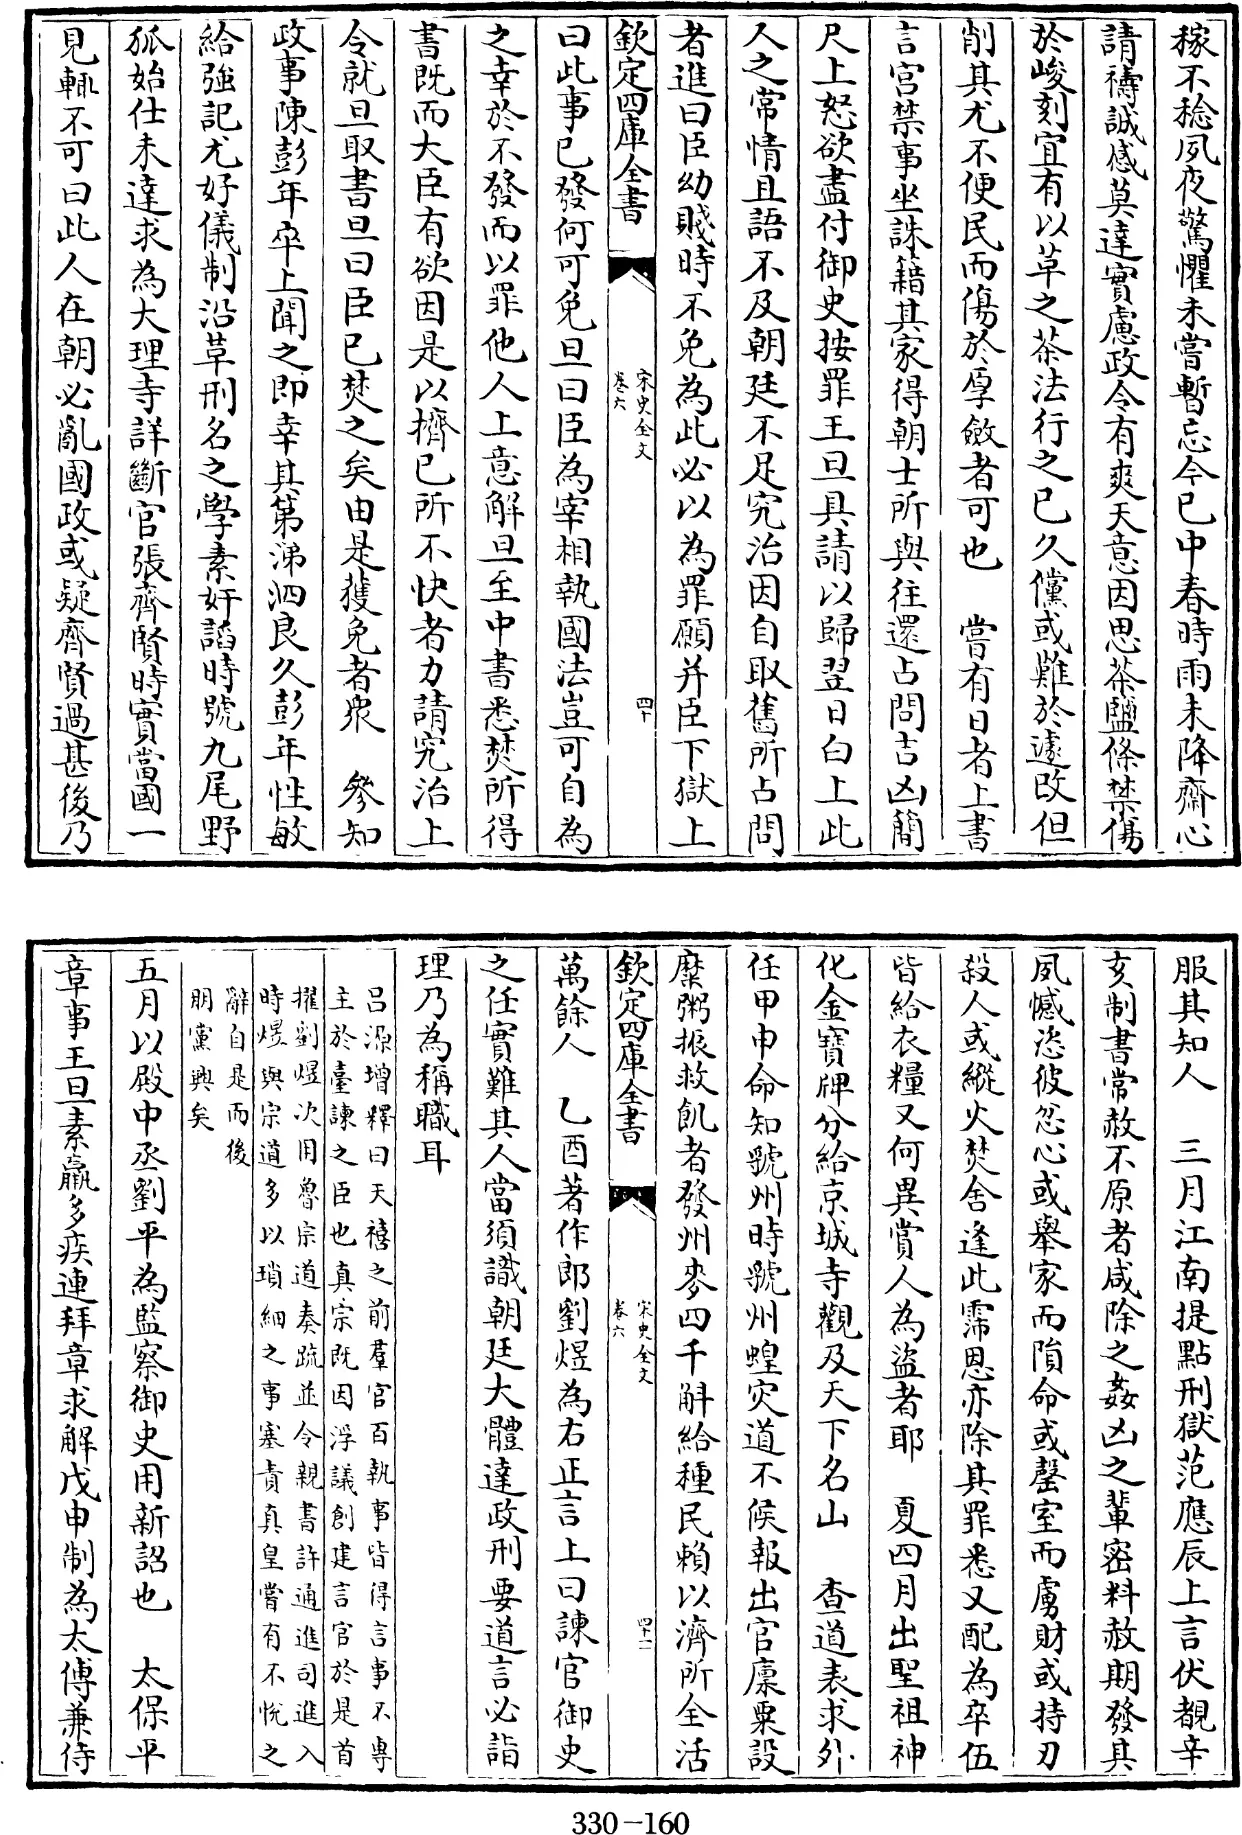 稼不稔夙夜驚懼未嘗暫忘今已中春時雨未降齋心
請禱誠感莫達實慮政令有爽天意因思茶鹽條禁傷
於峻刻宜有以革之茶法行之已久儻或難於遽改但
削其尤不便民而傷於厚斂者可也　嘗有日者上書
言宮禁事坐誅籍其家得朝士所與往還占問吉凶簡
尺上怒欲盡付御史按罪王旦具請以歸翌日白上此
人之常情且語不及朝廷不足究治因自取舊所占問
者進曰臣幼賤時不免為此必以為罪願并臣下獄上
欽定四庫全書
宋史全文
卷六
四十
曰此事已發何可免旦曰臣為宰相執國法豈可自為
之幸於不發而以罪他人上意解旦至中書悉焚所得
書既而大臣有欲因是以擠已所不快者力請究治上
令就旦取書旦曰臣已焚之矣由是獲免者衆　參知
政事陳彭年卒上聞之即幸其第涕泗良久彭年性敏
給強記尤好儀制沿革刑名之學素奸諂時號九尾野
狐始仕未達求為大理寺詳斷官張齊賢時實當國一
見輒不可曰此人在朝必亂國政或疑齊賢過甚後乃
服其知人　三月江南提點刑獄范應辰上言伏覩辛
亥制書常赦不原者咸除之姦凶之輩密料赦期發其
夙憾恣彼忿心或舉家而隕命或罄室而虜財或持刃
殺人或縱火焚舍逢此霈恩亦除其罪悉又配為卒伍
皆給衣糧又何異賞人為盜者耶　夏四月出聖祖神
化金寶牌分給京城寺觀及天下名山　查道表求外
任甲申命知虢州時虢州蝗灾道不候報出官廪粟設
糜粥振救飢者發州麥四千斛給種民賴以濟所全活
欽定四庫全書
宋史全文
卷六
四十一
萬餘人　乙酉著作郎劉煜為右正言上曰諫官御史
之任實難其人當須識朝廷大體達政刑要道言必詣
理乃為稱職耳
呂源增釋曰天禧之前羣官百執事皆得言事不專
主於臺諫之臣也真宗既因浮議創建言官於是首
擢劉煜次用魯宗道奏疏並令親書許通進司進入
時煜與宗道多以瑣細之事塞責真皇嘗有不悅之
辭自是而後
朋黨興矣
五月以殿中丞劉平為監察御史用新詔也　太保平
章事王旦素羸多疾連拜章求解戊申制為太傅兼侍
330-160